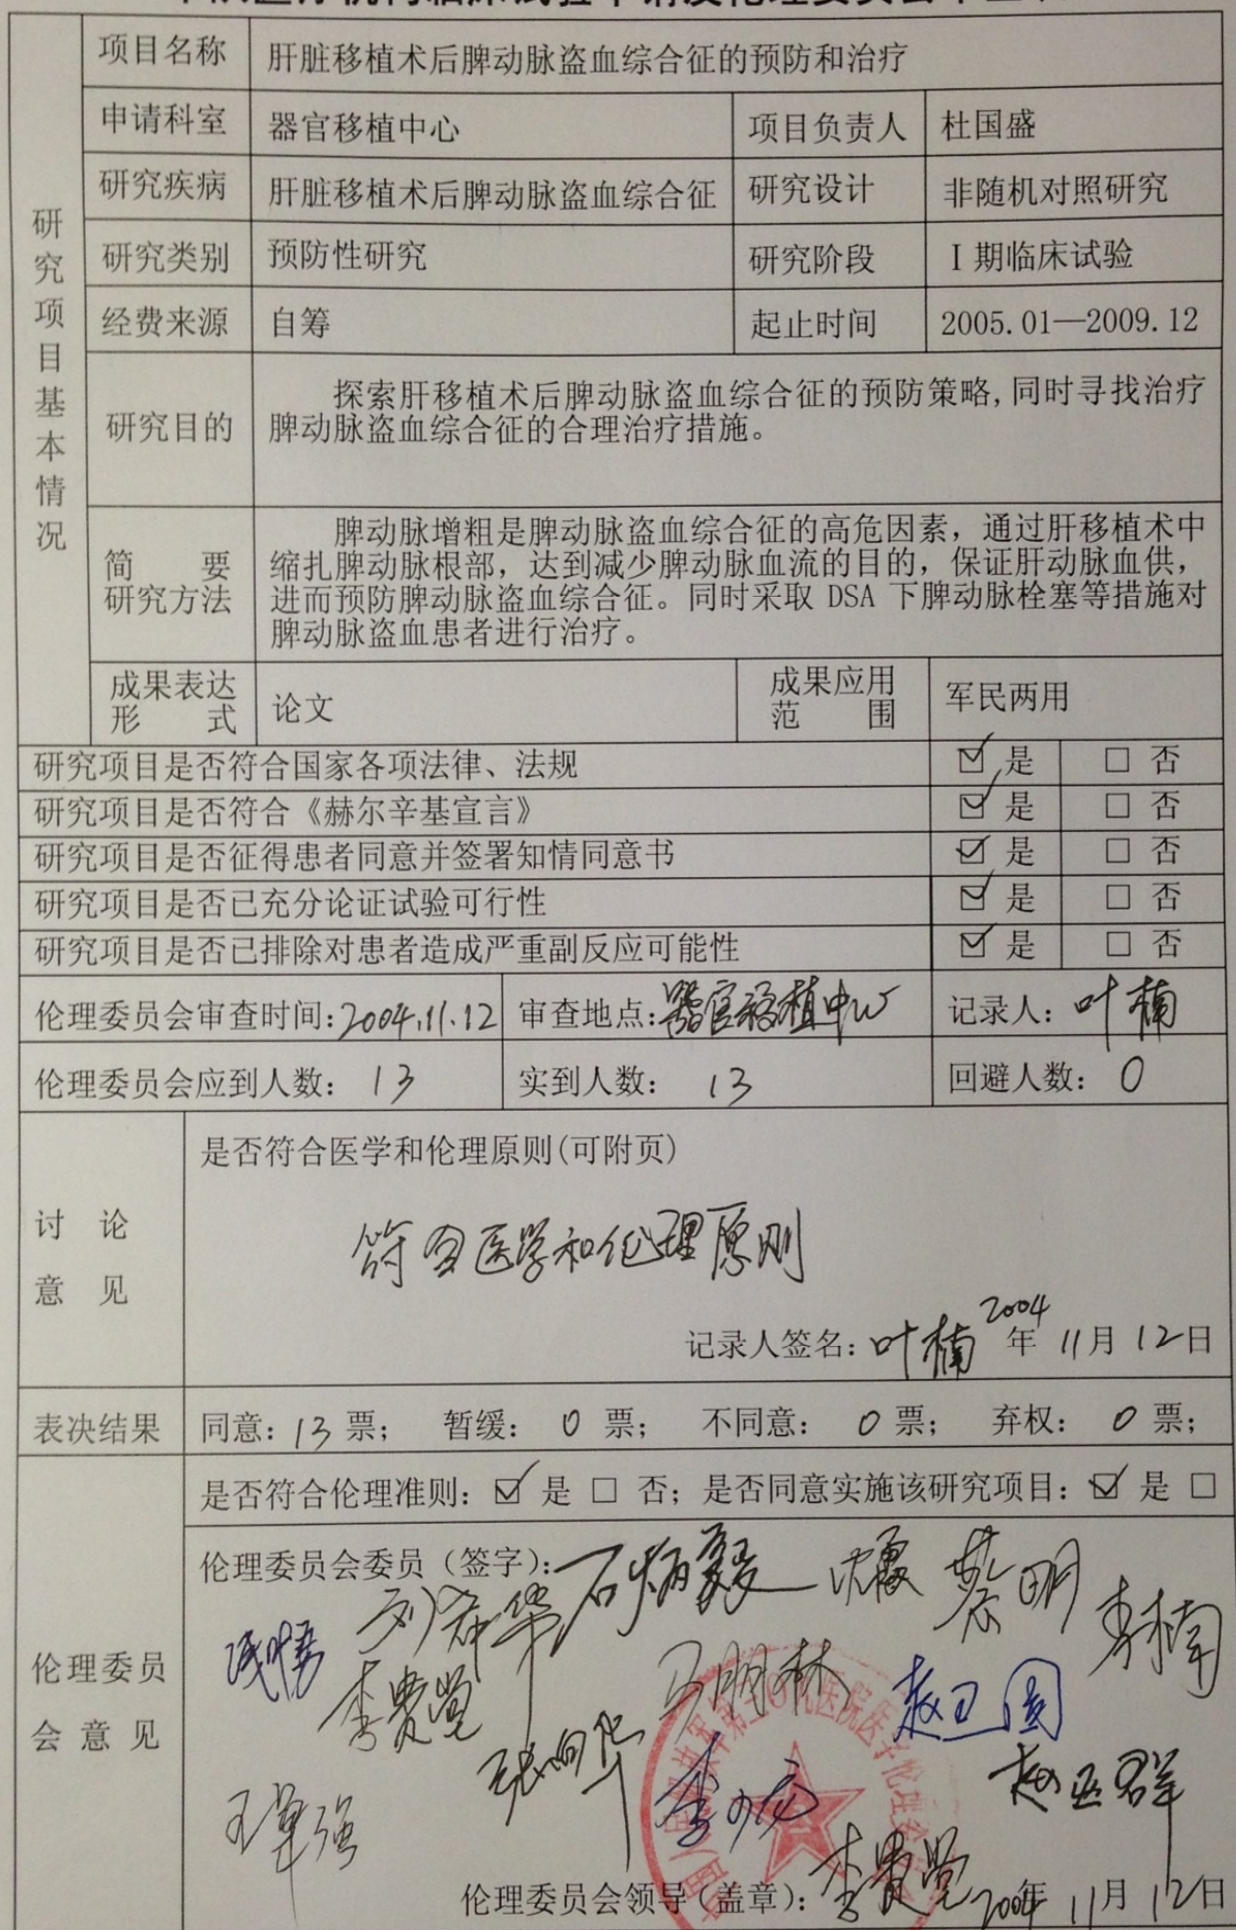 项目名称 肝脏移植术后脾动脉盗血综合征的预防和治疗
申请科室 器官移植中心 项目负责人 杜国盛
研究疾病 肝脏移植术后脾动脉盗血综合征 研究设计 非随机对照研究
研究类别 预防性研究 研究阶段 Ⅰ期临床试验
经费来源 自筹 起止时间 2005.01—2009.12
研究项目基本情况
研究目的
探索肝移植术后脾动脉盗血综合征的预防策略,同时寻找治疗
脾动脉盗血综合征的合理治疗措施。
简要
研究方法
脾动脉增粗是脾动脉盗血综合征的高危因素，通过肝移植术中
缩扎脾动脉根部，达到减少脾动脉血流的目的，保证肝动脉血供，
进而预防脾动脉盗血综合征。同时采取 DSA 下脾动脉栓塞等措施对
脾动脉盗血患者进行治疗。
成果表达
形式
论文
成果应用
范围
军民两用
研究项目是否符合国家各项法律、法规 ☑ 是 □ 否
研究项目是否符合《赫尔辛基宣言》 ☑ 是 □ 否
研究项目是否征得患者同意并签署知情同意书 ☑ 是 □ 否
研究项目是否已充分论证试验可行性 ☑ 是 □ 否
研究项目是否已排除对患者造成严重副反应可能性 ☑ 是 □ 否
伦理委员会审查时间:2004.11.12 审查地点:器官移植中心 记录人: 叶楠
伦理委员会应到人数: 13 实到人数: 13 回避人数: 0
讨论
意见
是否符合医学和伦理原则(可附页)
符合医学和伦理原则
记录人签名: 叶楠 2004年 11月 12日
表决结果 同意: 13 票; 暂缓: 0 票; 不同意: 0 票; 弃权: 0 票;
是否符合伦理准则: ☑ 是 □ 否; 是否同意实施该研究项目: ☑ 是 □
伦理委员
会意见
伦理委员会委员（签字）: 石炳毅 蔡明
李楠
李贵党 马明林 赵卫国
张向华 赵亚群
伦理委员会领导（盖章）: 李贵党 2004年 11月 12日